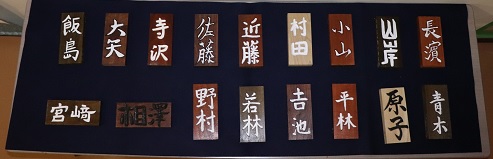 飯島
大矢
寺沢
佐藤
近藤
村田
小山
山岸
長濱
宮﨑
相澤
野村
若林
𠮷池
平林
原子
青木